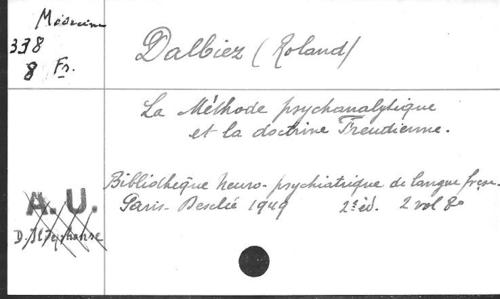 Médecine
338
8 Fr.
Dalbiez (Roland)
La Méthode psychanalytique
et la doctrine Freudienne.
Bibliothèque neuro-psychiatrique de langue frçse.
Paris - Desclée 1949 2e éd. 2 vol 8o
A. U.